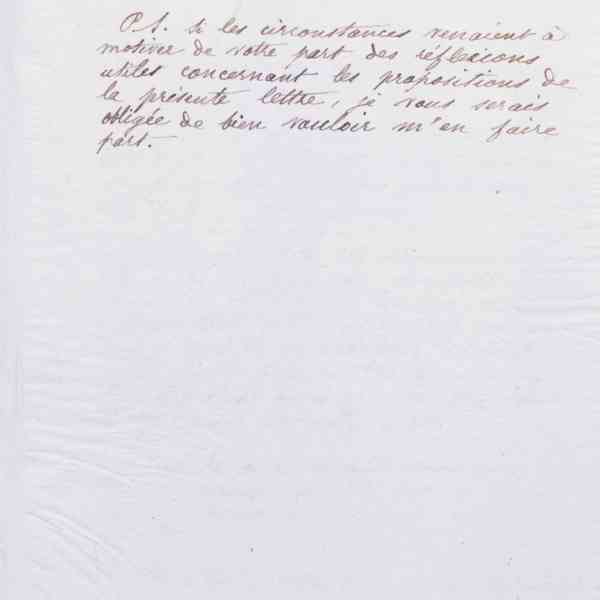 P.S. Si les circonstances venaient à
motiver de votre part des réflexions
utiles concernant les propositions de
la présente lettre, je vous serais
obligée de bien vouloir m'en faire
part.